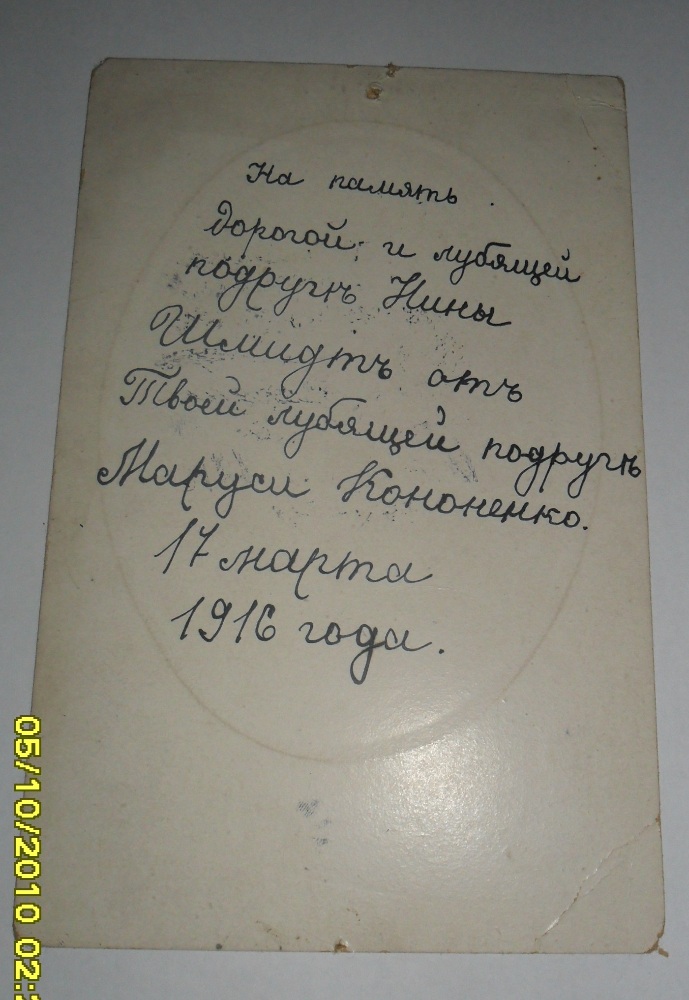 На память.
Дорогой и лубящей
подругѣ Нины
Шмидтъ отъ
Твоей лубящей подругѣ
Маруси Кононенко.
17 марта
1916 года.
05/10/2010 02: